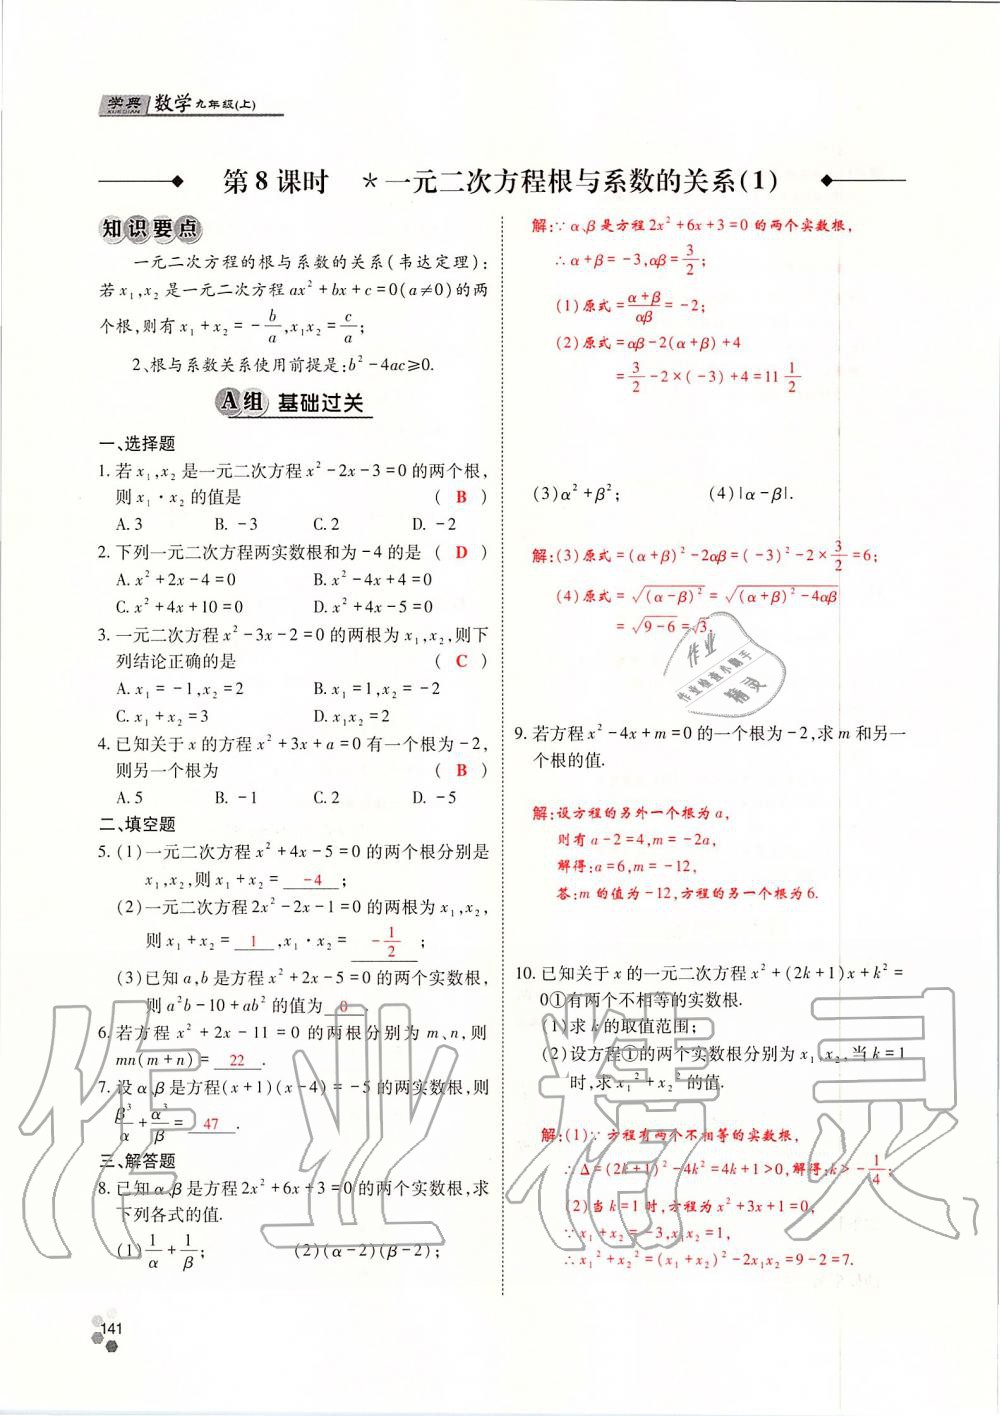 学典 数学 九年级(上)
XUEDIAN
第8课时 *一元二次方程根与系数的关系(1)
知识要点
一元二次方程的根与系数的关系(韦达定理):
若x₁,x₂是一元二次方程ax²+bx+c=0(a≠0)的两
个根,则有x₁+x₂=-b/a,x₁x₂=c/a;
2、根与系数关系使用前提是:b²-4ac≥0.
A组 基础过关
一、选择题
1. 若x₁,x₂是一元二次方程x²-2x-3=0的两个根,
则x₁·x₂的值是 ( B )
A. 3 B. -3 C. 2 D. -2
2. 下列一元二次方程两实数根和为-4的是 ( D )
A. x²+2x-4=0 B. x²-4x+4=0
C. x²+4x+10=0 D. x²+4x-5=0
3. 一元二次方程x²-3x-2=0的两根为x₁,x₂,则下
列结论正确的是 ( C )
A. x₁=-1,x₂=2 B. x₁=1,x₂=-2
C. x₁+x₂=3 D. x₁x₂=2
4. 已知关于x的方程x²+3x+a=0有一个根为-2,
则另一个根为 ( B )
A. 5 B. -1 C. 2 D. -5
二、填空题
5. (1)一元二次方程x²+4x-5=0的两个根分别是
x₁,x₂,则x₁+x₂= -4 ;
(2)一元二次方程2x²-2x-1=0的两根为x₁,x₂,
则x₁+x₂= 1 ,x₁·x₂= -1/2 ;
(3)已知a,b是方程x²+2x-5=0的两个实数根,
则a²b-10+ab²的值为 0 .
6. 若方程x²+2x-11=0的两根分别为m、n,则
mn(m+n)= 22 .
7. 设α、β是方程(x+1)(x-4)=-5的两实数根,则
β³/α+α³/β= 47 .
三、解答题
8. 已知α、β是方程2x²+6x+3=0的两个实数根,求
下列各式的值.
(1)1/α+1/β; (2)(α-2)(β-2);
解:∵α、β是方程2x²+6x+3=0的两个实数根,
∴α+β=-3,αβ=3/2;
(1)原式=(α+β)/αβ=-2;
(2)原式=αβ-2(α+β)+4
=3/2-2×(-3)+4=11 1/2
(3)α²+β²; (4)|α-β|.
解:(3)原式=(α+β)²-2αβ=(-3)²-2×3/2=6;
(4)原式=√(α-β)²=√(α+β)²-4αβ
=√9-6=√3.
作业
作业检查小助手
精灵
9. 若方程x²-4x+m=0的一个根为-2,求m和另一
个根的值.
解:设方程的另外一个根为a,
则有a-2=4,m=-2a,
解得:a=6,m=-12,
答:m的值为-12,方程的另一个根为6.
10. 已知关于x的一元二次方程x²+(2k+1)x+k²=
0①有两个不相等的实数根.
(1)求k的取值范围;
(2)设方程①的两个实数根分别为x₁,x₂,当k=1
时,求x₁²+x₂²的值.
解:(1)∵方程有两个不相等的实数根,
∴Δ=(2k+1)²-4k²=4k+1>0,解得:k>-1/4;
(2)当k=1时,方程为x²+3x+1=0,
∵x₁+x₂=-3,x₁x₂=1,
∴x₁²+x₂²=(x₁+x₂)²-2x₁x₂=9-2=7.
作业精灵
141